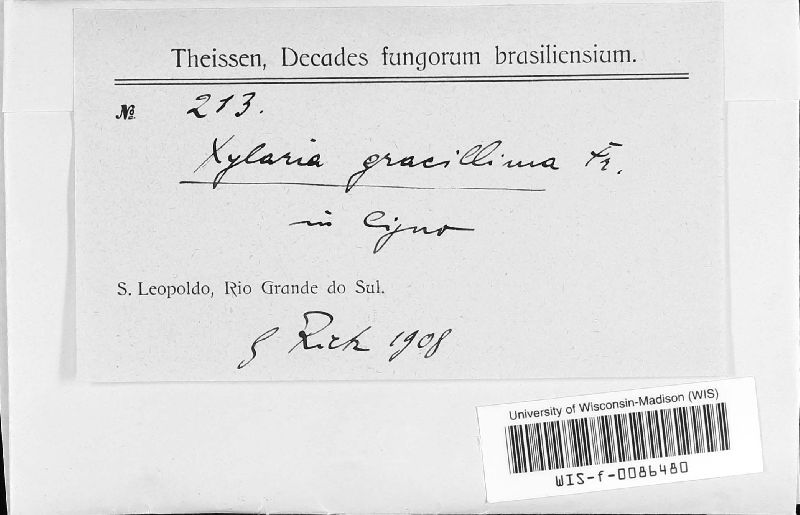 Theissen, Decades fungorum brasiliensium.
№ 213.
Xylaria gracillima Fr.
in ligno
S. Leopoldo, Rio Grande do Sul.
Rick 1908
University of Wisconsin-Madison (WIS)
WIS-f-0086480